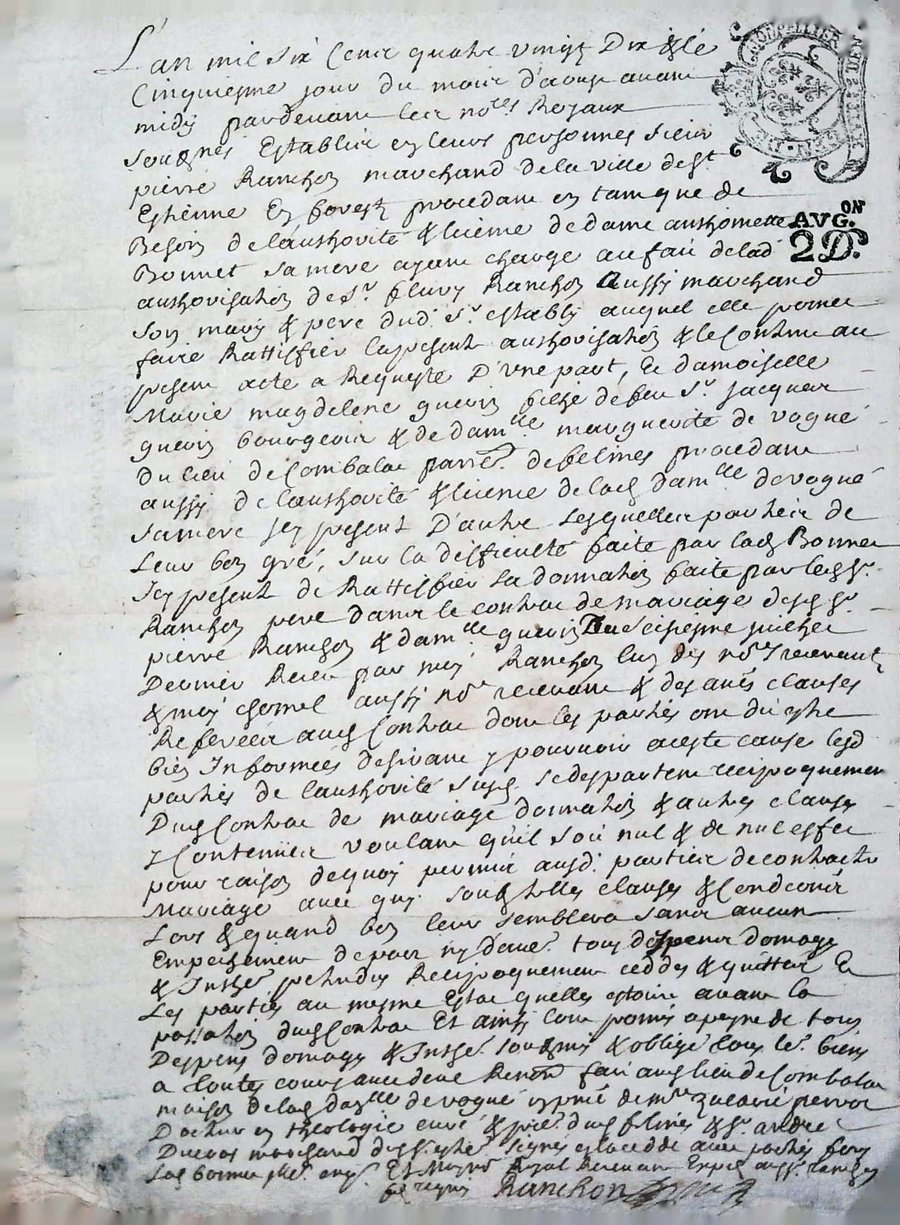 L'an mil six cent quatre vingt dix & le
cinquiesme jour du mois d'aoust avant
midy pardevant les nores Royaux
soubsnés establis en leurs personnes sieur
pierre Ranchon marchand de la ville de st
Estienne En forest procedant en tant que de
Besoin de l'authorité & licence de dame anthoinette
Bonnet sa mere ayant charge au fait de lad
authorisation de sr fleury Ranchon aussy marchand
son mary & pere dud. sr establi auquel elle promet
faire Rattiffier la present authorisation & le contenu au
present acte a Requeste D'une part, Et damoiselle
Marie magdelene guerin fillie de feu sr Jacques
guerin bourgeois & de damlle marguerite de vogué
du lieu de Combalac parre. de felines procedant
aussy de l'authorité & licence de lad damlle de vogué
sa mere icy present D'autre Lesquelles parties de
Leur bon gré, sur la difficulté faite par lad Bonnet
icy present de Rattiffier la donnation faite par led sr
Ranchon pere dans le contrac de mariage desd sr
pierre Ranchon & damlle guerin Du seiziesme juillet
Dernier Receu par moy Ranchon l'un des nores recevant
& moy chomel aussy nore recevant & des aues clauses
Referées aud Contrac dont les parties ont dit estre
bien Informées desirant y pourvoir a ceste cause lesd
parties de l'authorité susd. se despartent reciproquement
Dud Contrac de mariage donnation & autres clauses
y Contenues voulant qu'il soit nul & de nul effet
pour raison dequoy permis ausd. parties de contracter
Mariage avec qui soubs telles clauses & conditions
Lors & quand bon leur semblera sans aucun
Empeschement
& reciproquement ceddés & quittés Et
Les parties au mesme Estat quelles estoint avant la
passation dud Contrac Et ainsi l'ont promis a peyne de tous
Despens domages & Inthe. soubmis & obligé tous les biens
a toutes cours avec deue Renon fait aud lieu de Combalac
maison de lad damlle de vogué en presence de mre Zacarie perrot
Docteur en theologie curé & prie. dud felines & sr andré
Duclos marchand
signés
Ranchon
AVG.ON
2 D.